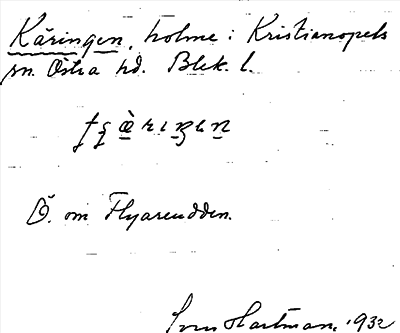 Käringen, holme i Kristianopels
sn. Östra hd. Blek. l.
Ö. om Flyareudden.
Sven Hartman, 1932